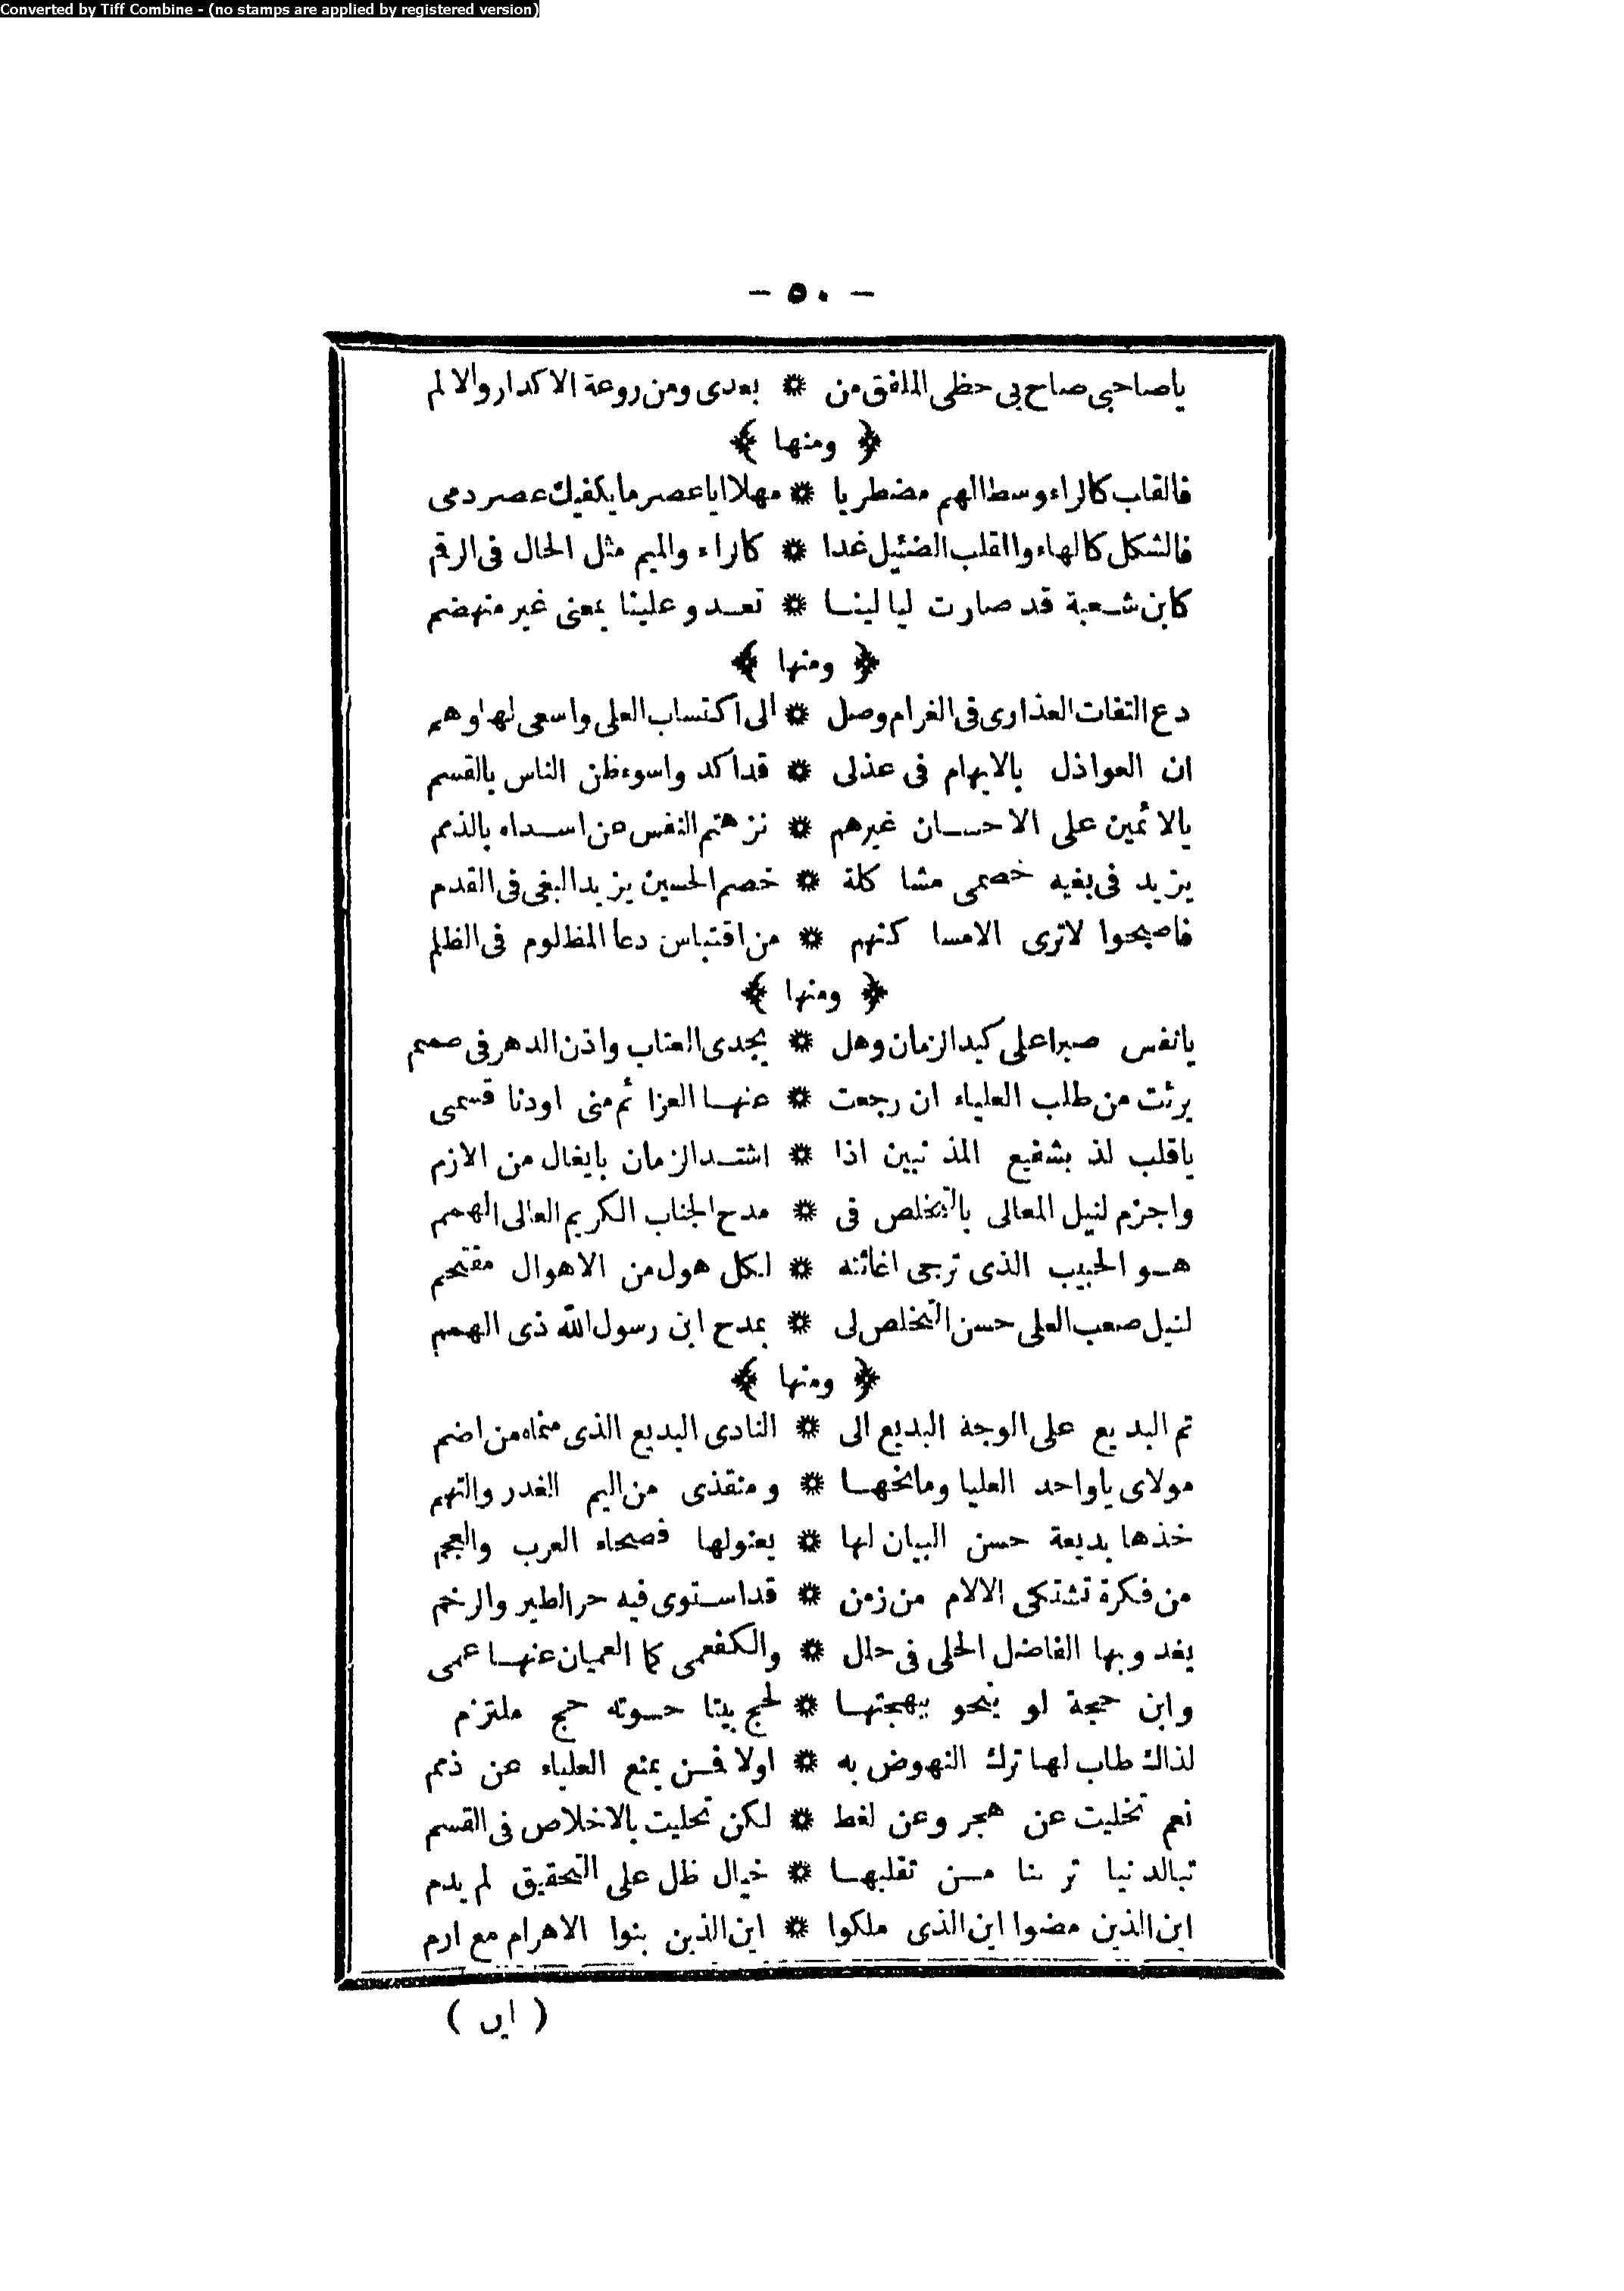 Converted by Tiff Combine - (no stamps are applied by registered version)
- ٥٠ -
ياصاحبى صاح بى حظى الملفق من * بعدى ومن روعة الاكدار والالم
﴿ ومنها ﴾
فالقاب كالراء وسط الهم مضطربا * مهلا ايا عصر ما يكفيك عصر دمى
فالشكل كالهاء والقلب الضئيل غدا * كالراء والميم مثل الحال فى الرقم
كابن شعبة قد صارت ليالينا * تعدو علينا بمعنى غير منهضم
﴿ ومنها ﴾
دع التفات العذارى فى الغرام وصل * الى اكتساب العلى واسعى لها وهم
ان العواذل بالابهام فى عذلى * قد اكد واسوء ظن الناس بالقسم
يالائمين على الاحسان غيرهم * نزهتم النفس عن اسداه بالذمم
يزيد فى بغيه خصمى مشاكلة * خصم الحسين يزيد البغى فى القدم
فاصبحوا لاترى الامساكنهم * من اقتباس دعا المظلوم فى الظلم
﴿ ومنها ﴾
يانفس صبرا على كيد الزمان وهل * يجدى العتاب واذن الدهر فى صمم
برئت من طلب العلياء ان رجعت * عنها العزائم منى اودنا قسمى
ياقلب لذ بشفيع المذنبين اذا * اشتد الزمان بايغال من الازم
واجزم لنيل المعالى بالتخلص فى * مدح الجناب الكريم العالى الهمم
هو الحبيب الذى ترجى اغاثته * لكل هول من الاهوال مقتحم
لنيل صعب العلى حسن التخلص لى * بمدح ابن رسول الله ذى الهمم
﴿ ومنها ﴾
تم البديع على الوجة البديع الى * النادى البديع الذى منماه من اضم
مولاى ياواحد العليا ومانحها * ومنقذى من اليم الغدر والتهم
خذها بديعة حسن البيان لها * يعنولها فصحاء العرب والعجم
من فكرة تشتكى الالام من زمن * قد استوى فيه حر الطير والرخم
يغدو بها الفاضل الحلى فى حلل * والكفعمى كما العميان عنها عمى
وابن حجة لو ينحو ببهجتها * لحج بيتا حسوته حج ملتزم
لذاك طاب لها ترك النهوض به * اولا فمن يمنع العلياء عن ذمم
نعم تخليت عن هجر وعن لغط * لكن تحليت بالاخلاص فى القسم
تبالدنيا ترينا من تقلبها * خيال ظل على التحقيق لم يدم
اين الذين مضوا اين الذى ملكوا * اين الذين بنوا الاهرام مع ارم
( اين )